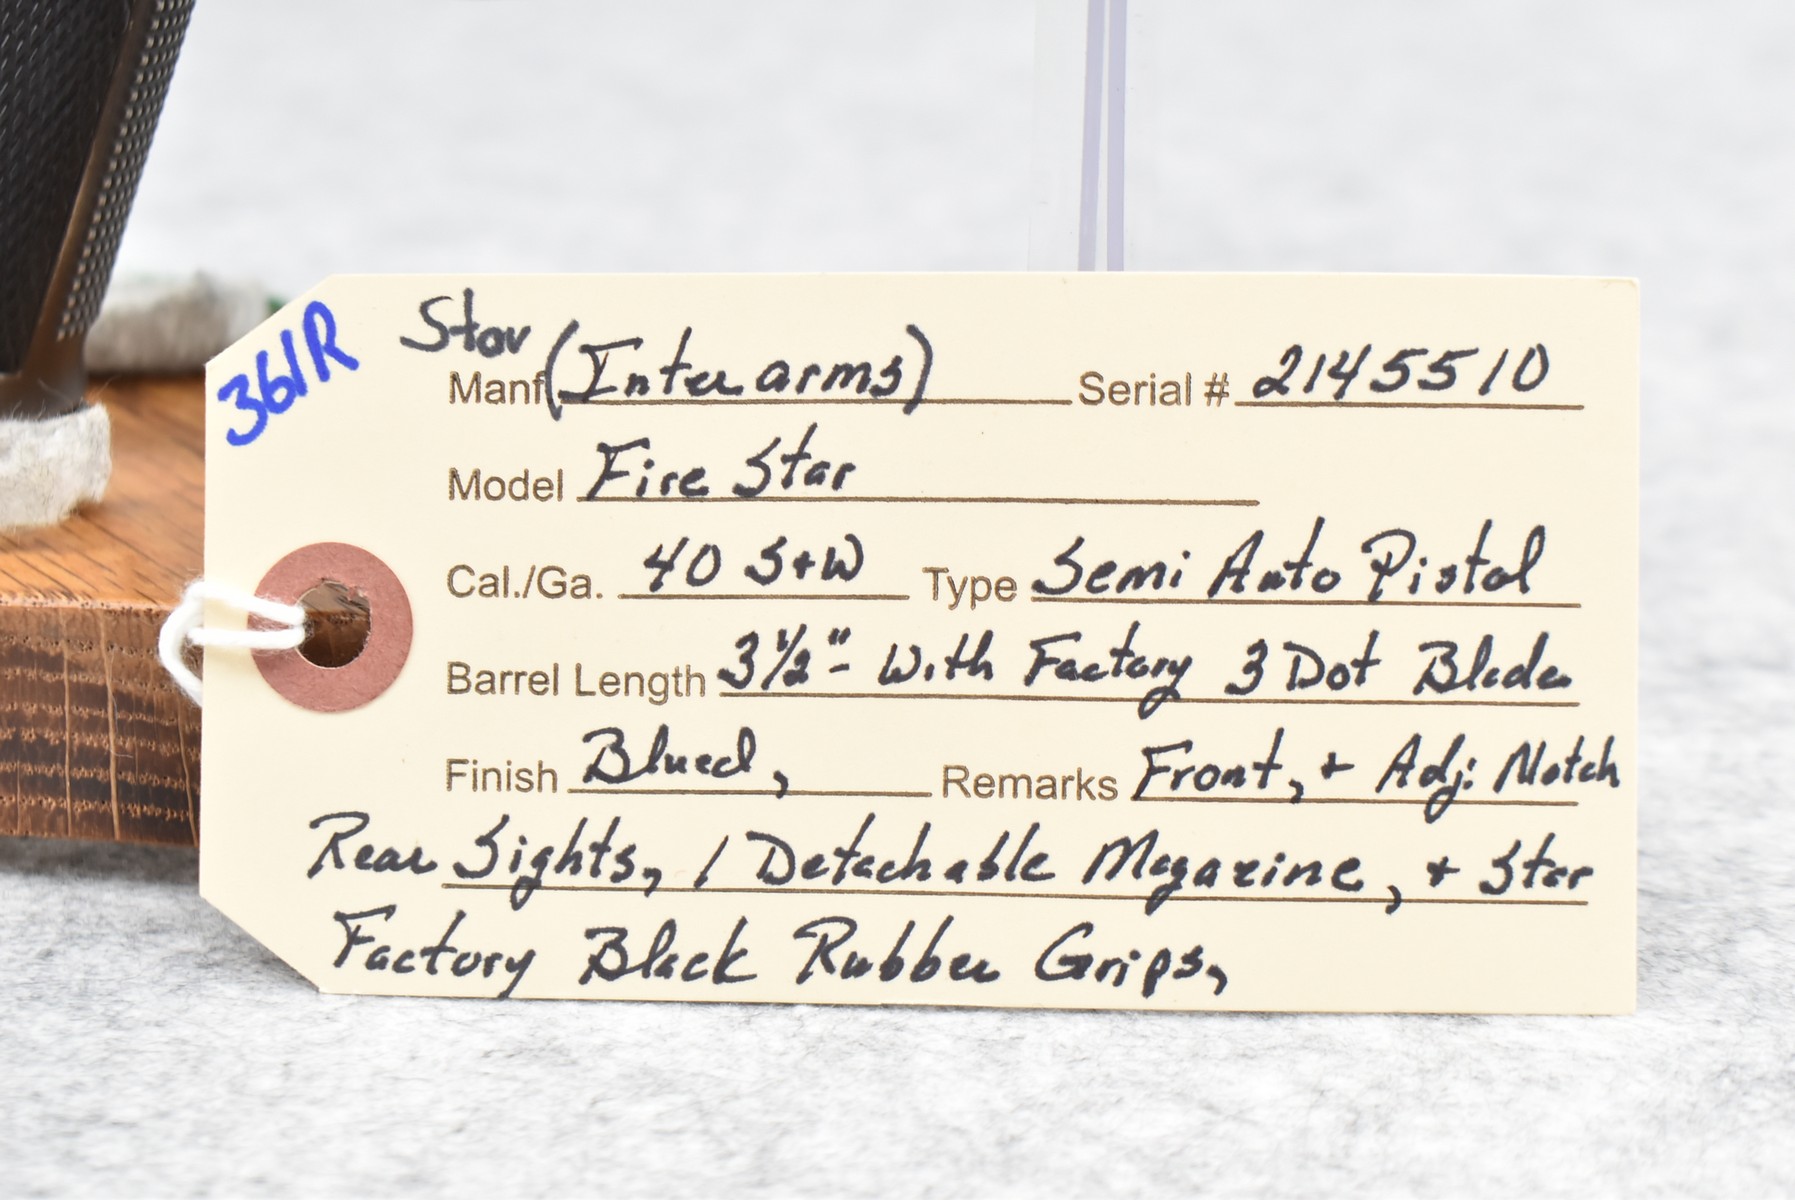 361R
Star
Manf (Interarms) Serial # 2145510
Model Fire Star
Cal./Ga. 40 S+W Type Semi Auto Pistol
Barrel Length 3 1/2" - With Factory 3 Dot Blade
Finish Blued, Remarks Front, + Adj: Notch
Rear Sights, 1 Detachable Magazine, + Star
Factory Black Rubber Grips,